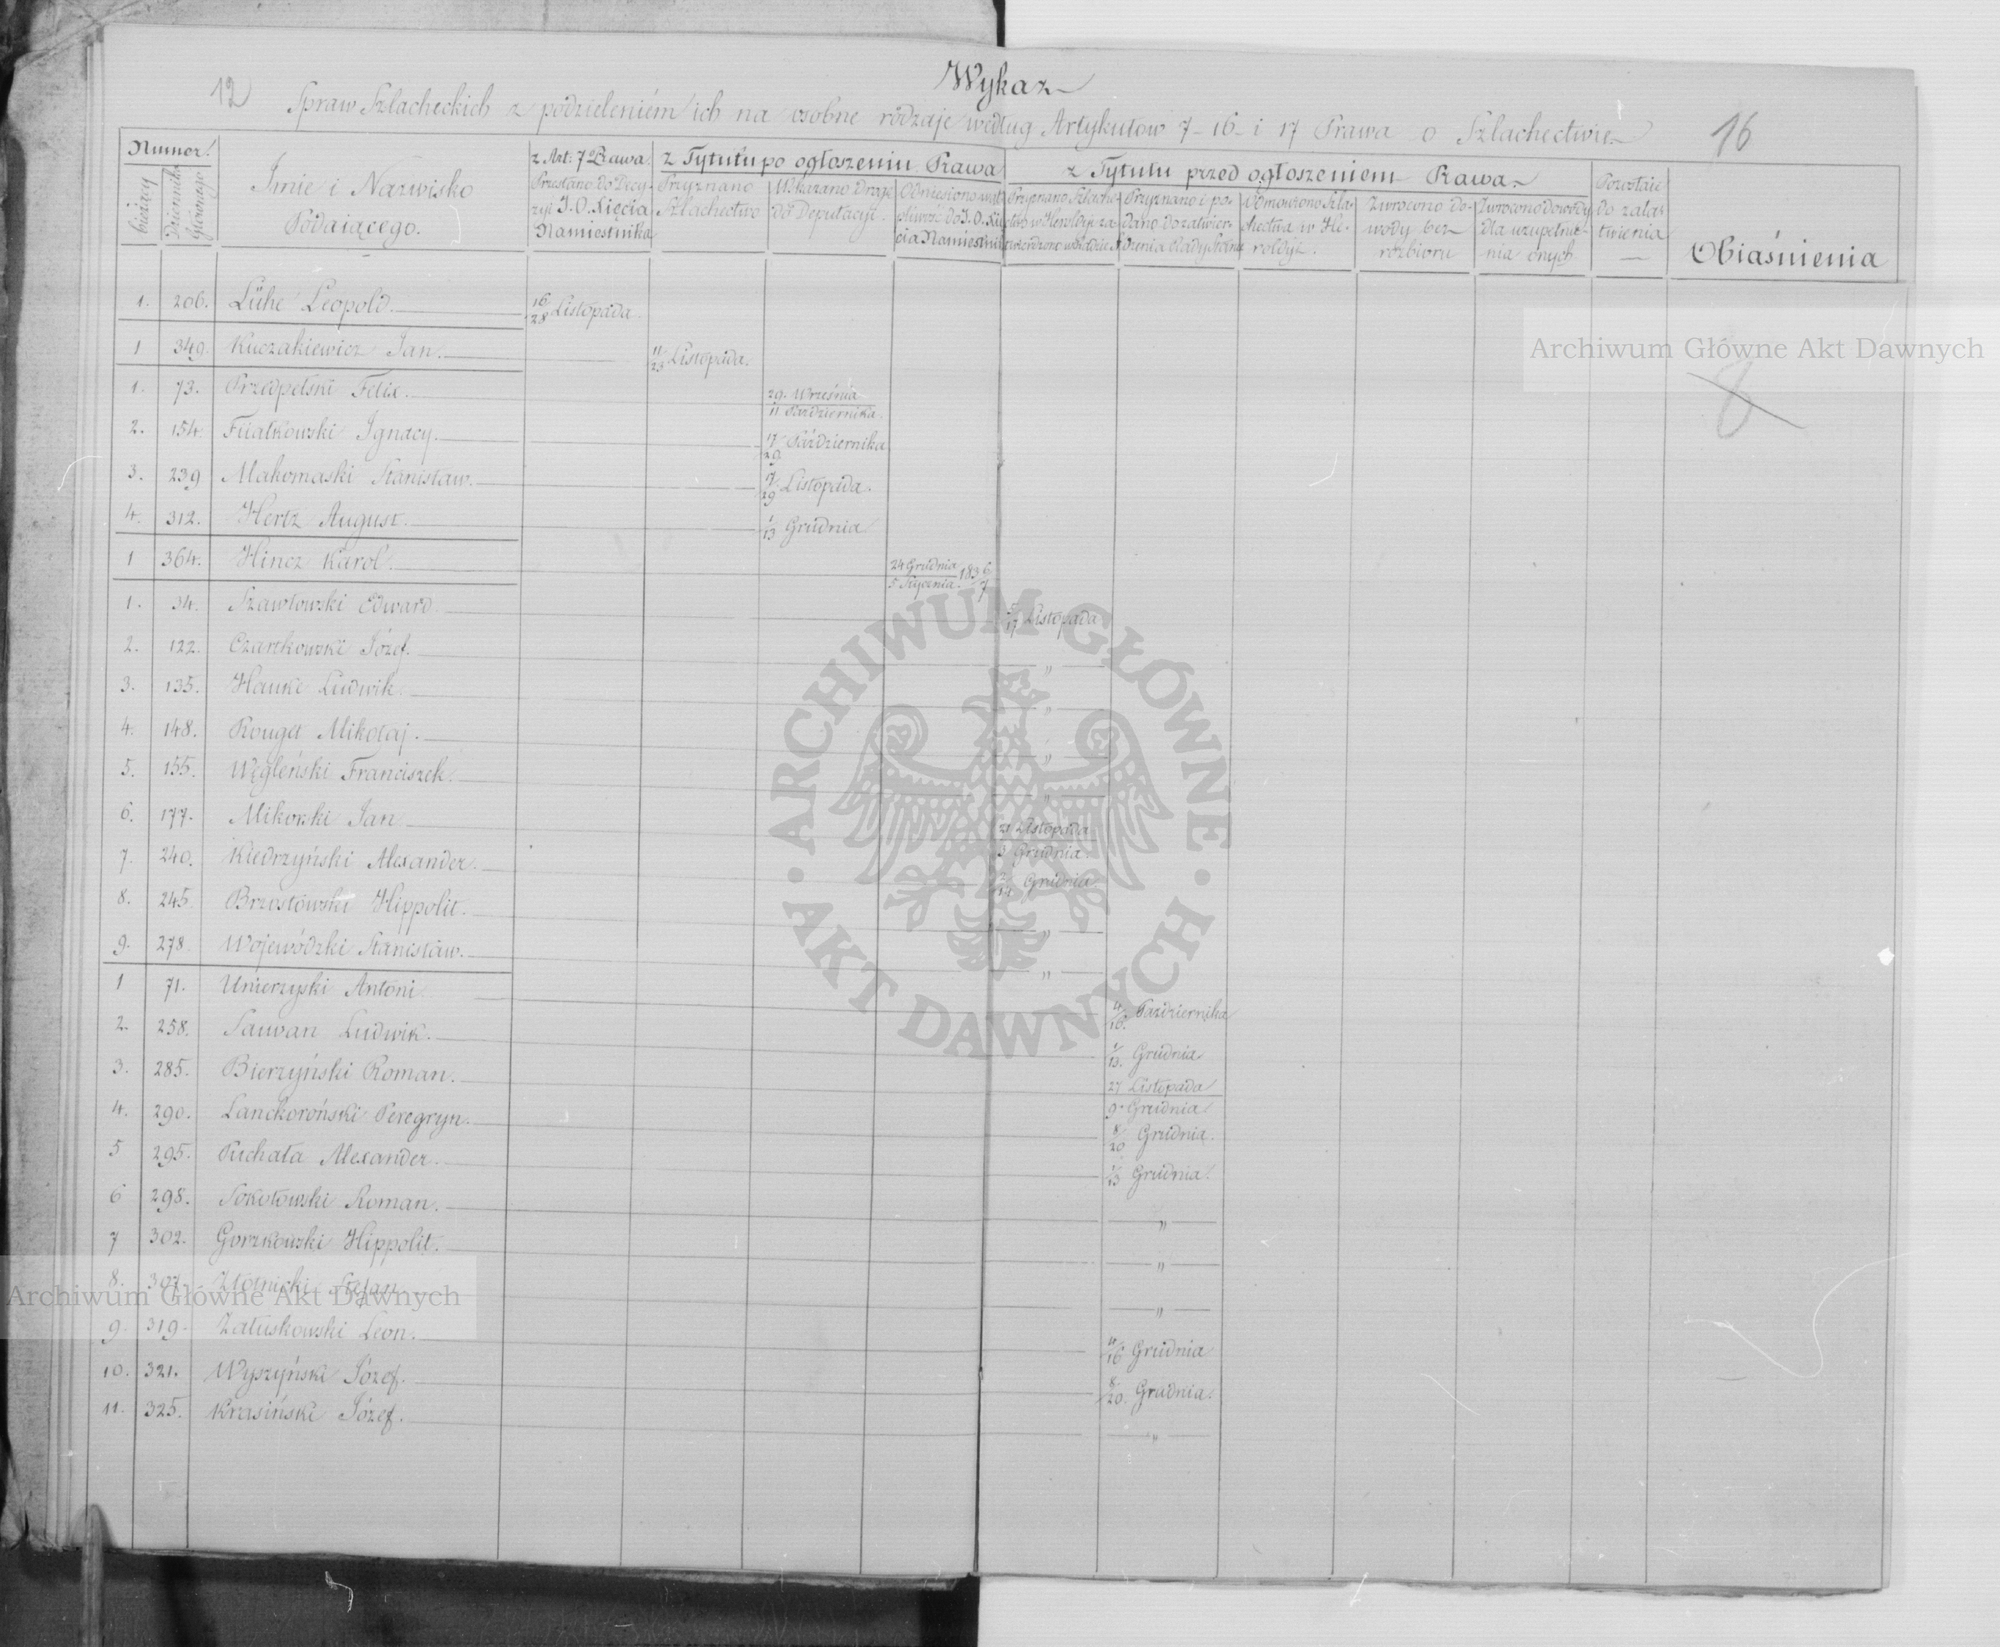 Wykaz
12 Spraw Szlacheckich z podzieleniém ich na osobne rodzaje według Artykułow 7- 16- i 17 Prawa o Szlachectwie 16
Numer
bieżący
Dziennika Głównego
Imie i Nazwisko
Podaiącego.
z Art: 7º Prawa.
Przesłano do Decy-
zyi J. O. Xięcia
Namiestnika
z Tytułu po ogłoszeniu Prawa
Przyznano
Szlachectwo
Wskazano Drogę
do Deputacyi.
Odniesiono wąt-
pliwość do J. O. Xię
cia Namiestni
z Tytułu przed ogłoszeniem Prawa
Przyznano Szlache-
ctwo w Heroldyi za-
twierdzono w Radzie St
Przyznano i po-
dano do zatwier-
dzenia Rady Stanu
Odmówiono Szla-
chectwa w He-
roldyi.
Zwrocono do-
wody bez
rozbioru
Zwrocono dowody
dla uzupełnie-
nia onych
Pozostaie
do zała-
twienia
Obiaśnienia
1. 206. Lühe Leopold. 16/28 Listopada.
1 349. Kuczakiewicz Jan. 11/23 Listopada.
1. 73. Przedpełski Felix. 29. Września / 11 Października.
2. 154. Fijałkowski Ignacy. 17/29 Października
3. 239 Makomaski Stanisław. 17/29 Listopada.
4. 312. Hertz August. 1/13 Grudnia
1 364. Hincz Karol. 24 Grudnia / 5 Stycznia. 1836/7
1. 34. Szawłowski Edward. 5/17 Listopada
2. 122. Czartkowski Józef. "
3. 135. Hauke Ludwik. "
4. 148. Rouget Mikołaj. "
5. 155. Węgleński Franciszek. "
6. 177. Mikorski Jan 21 Listopada / 3 Grudnia.
7. 240. Kiedrzyński Alexander. 2/14 Grudnia
8. 245. Brzostowski Hippolit. "
9. 278. Wojewódzki Stanisław. "
1 71. Unierzyski Antoni 4/16. Października
2. 258. Sauvan Ludwik. 1/13. Grudnia
3. 285. Bierzyński Roman. 27 Listopada / 9. Grudnia
4. 290. Lanckoroński Peregryn. 8/20 Grudnia.
5 295. Puchała Alexander. 1/13 Grudnia.
6 298. Sokołowski Roman. "
7 302. Gorzkowski Hippolit. "
8. 307. Złotnicki Stefan "
9. 319. Załuskowski Leon. 4/16 Grudnia
10. 321. Wyszyński Józef. 8/20. Grudnia.
11. 325. Krasiński Józef. "
8
Archiwum Główne Akt Dawnych
ARCHIWUM GŁÓWNE
AKT DAWNYCH
Archiwum Główne Akt Dawnych